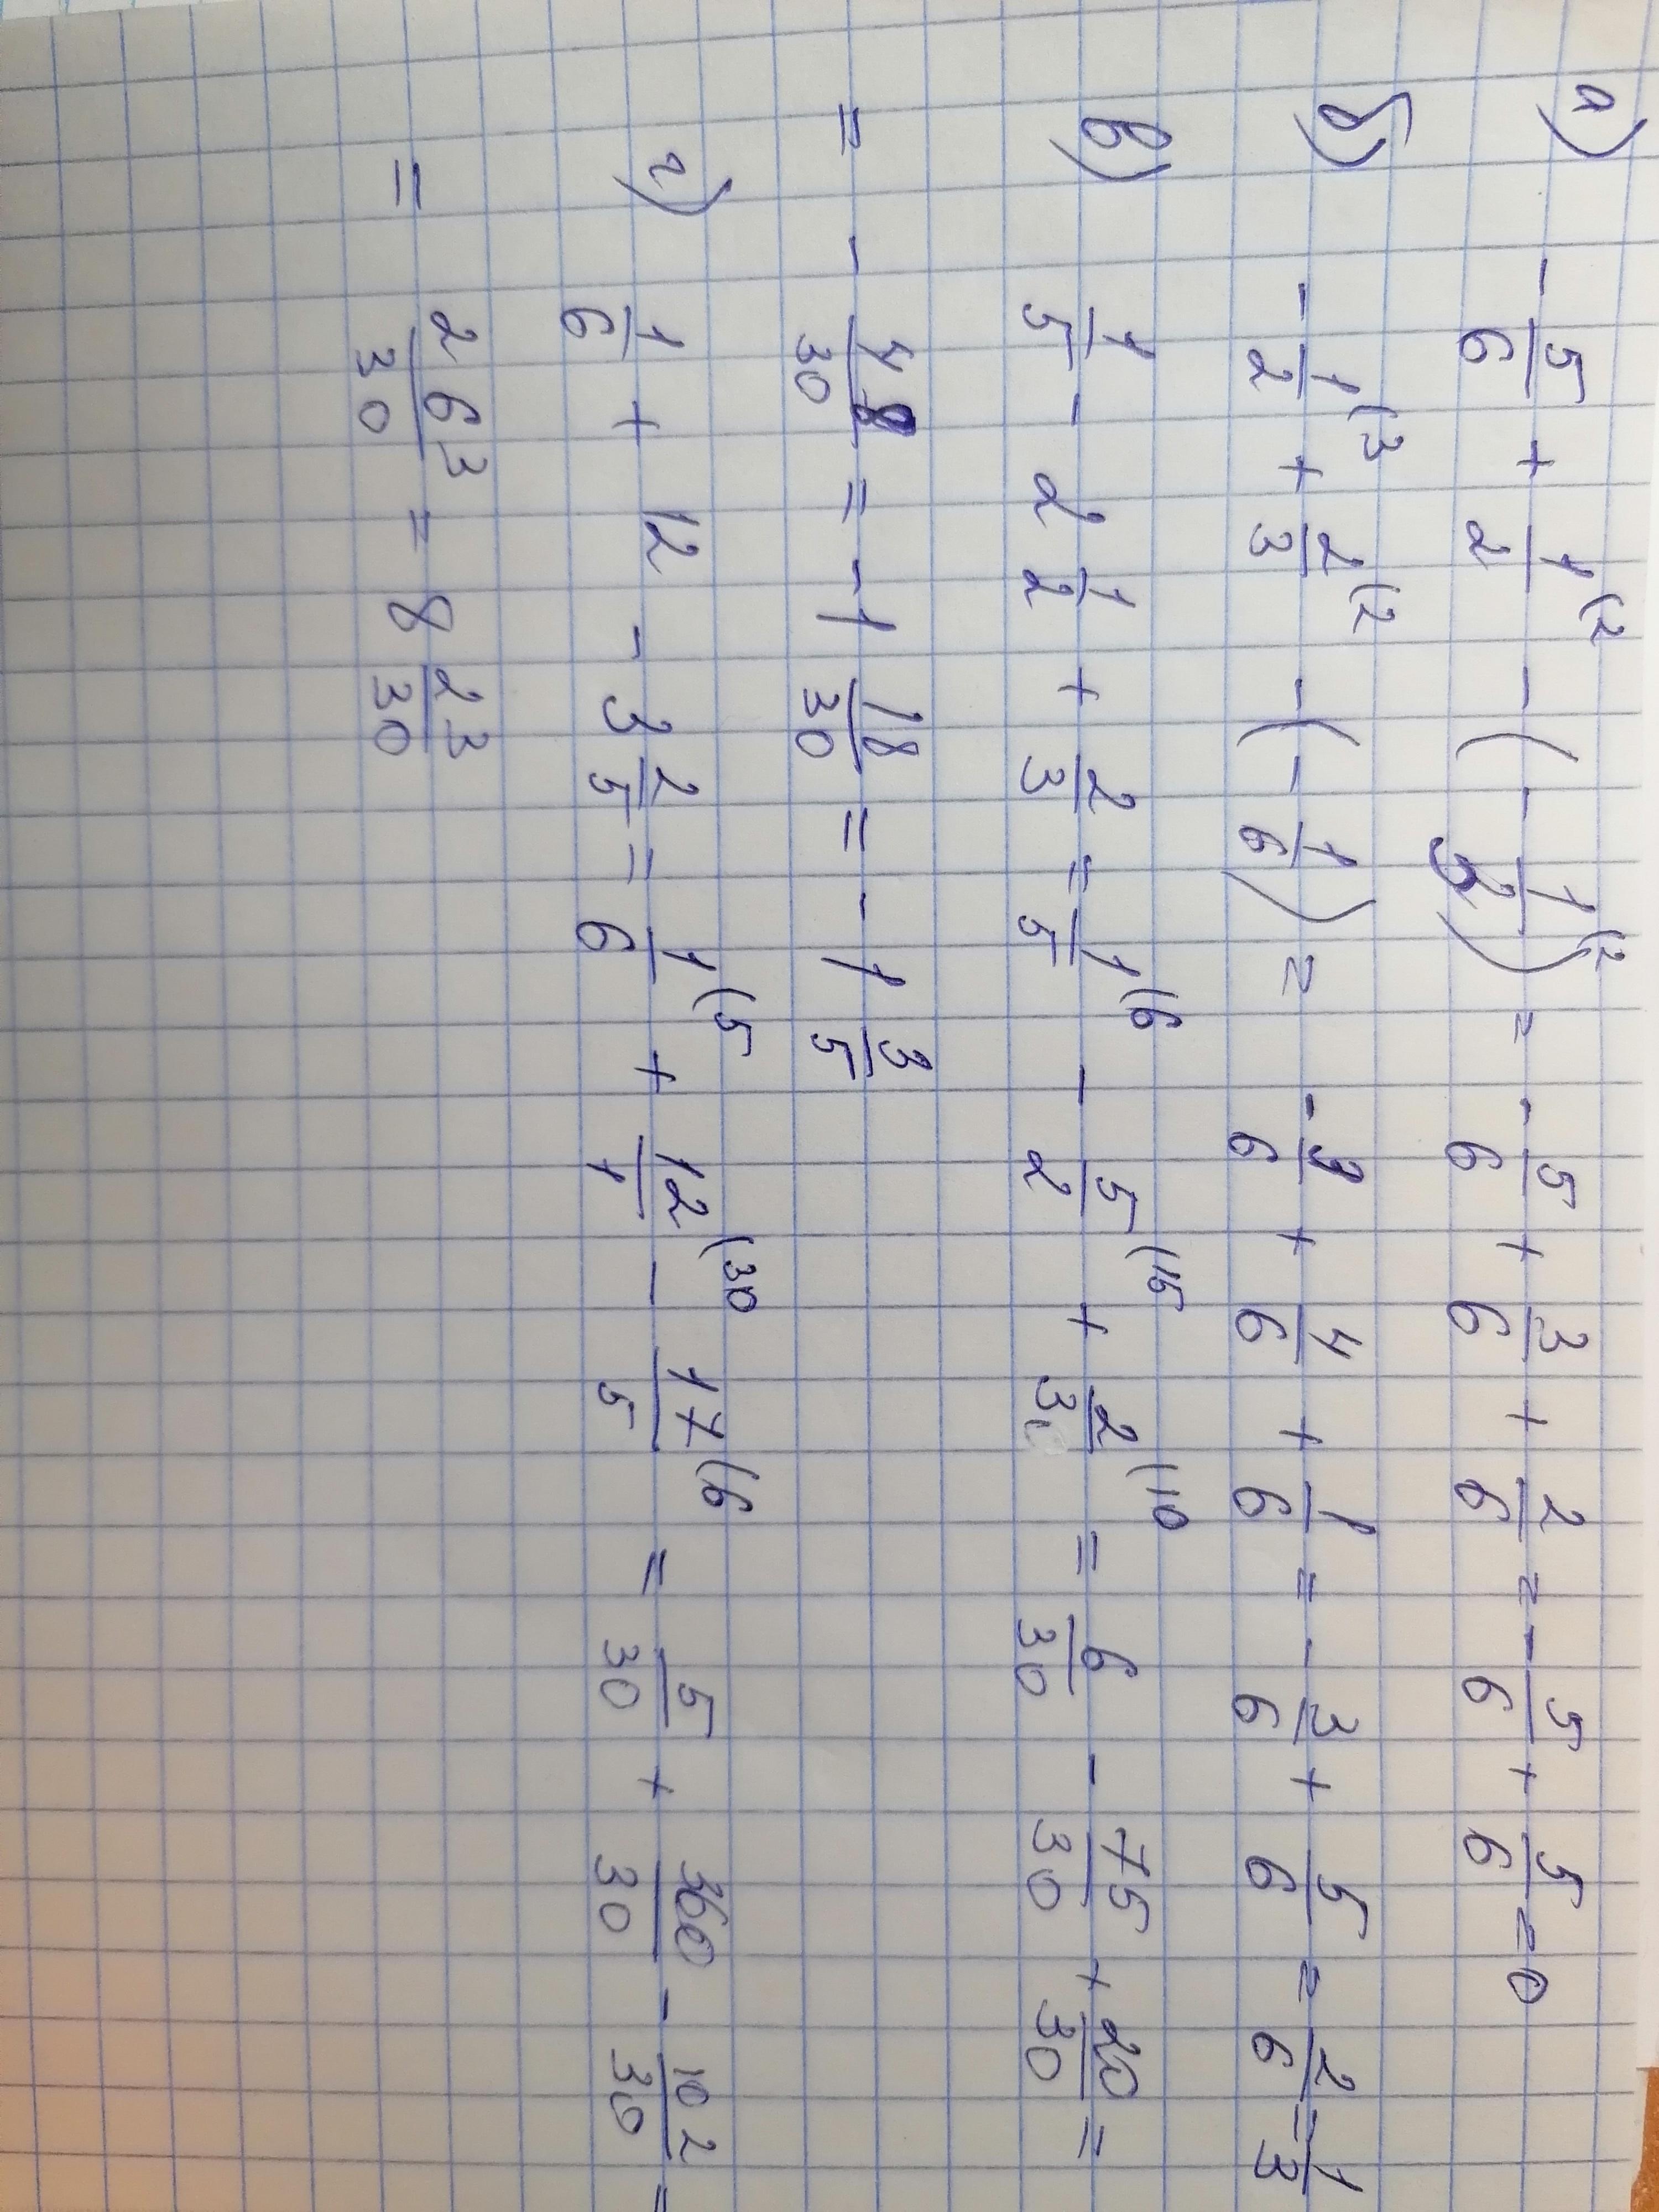 а) - 5/6 + 1/2 (2 - (- 1/3 (2) = - 5/6 + 3/6 + 2/6 = - 5/6 + 5/6 = 0
б) - 1/2 (3 + 2/3 (2 - (- 1/6) = - 3/6 + 4/6 + 1/6 = - 3/6 + 5/6 = 2/6 = 1/3
в) 1/5 - 2 1/2 + 2/3 = 1/5 (6 - 5/2 (15 + 2/3 (10 = 6/30 - 75/30 + 20/30 =
= - 48/30 = - 1 18/30 = - 1 3/5
г) 1/6 + 12 - 3 2/5 = 1/6 (5 + 12/1 (30 - 17/5 (6 = 5/30 + 360/30 - 102/30 =
= 263/30 = 8 23/30